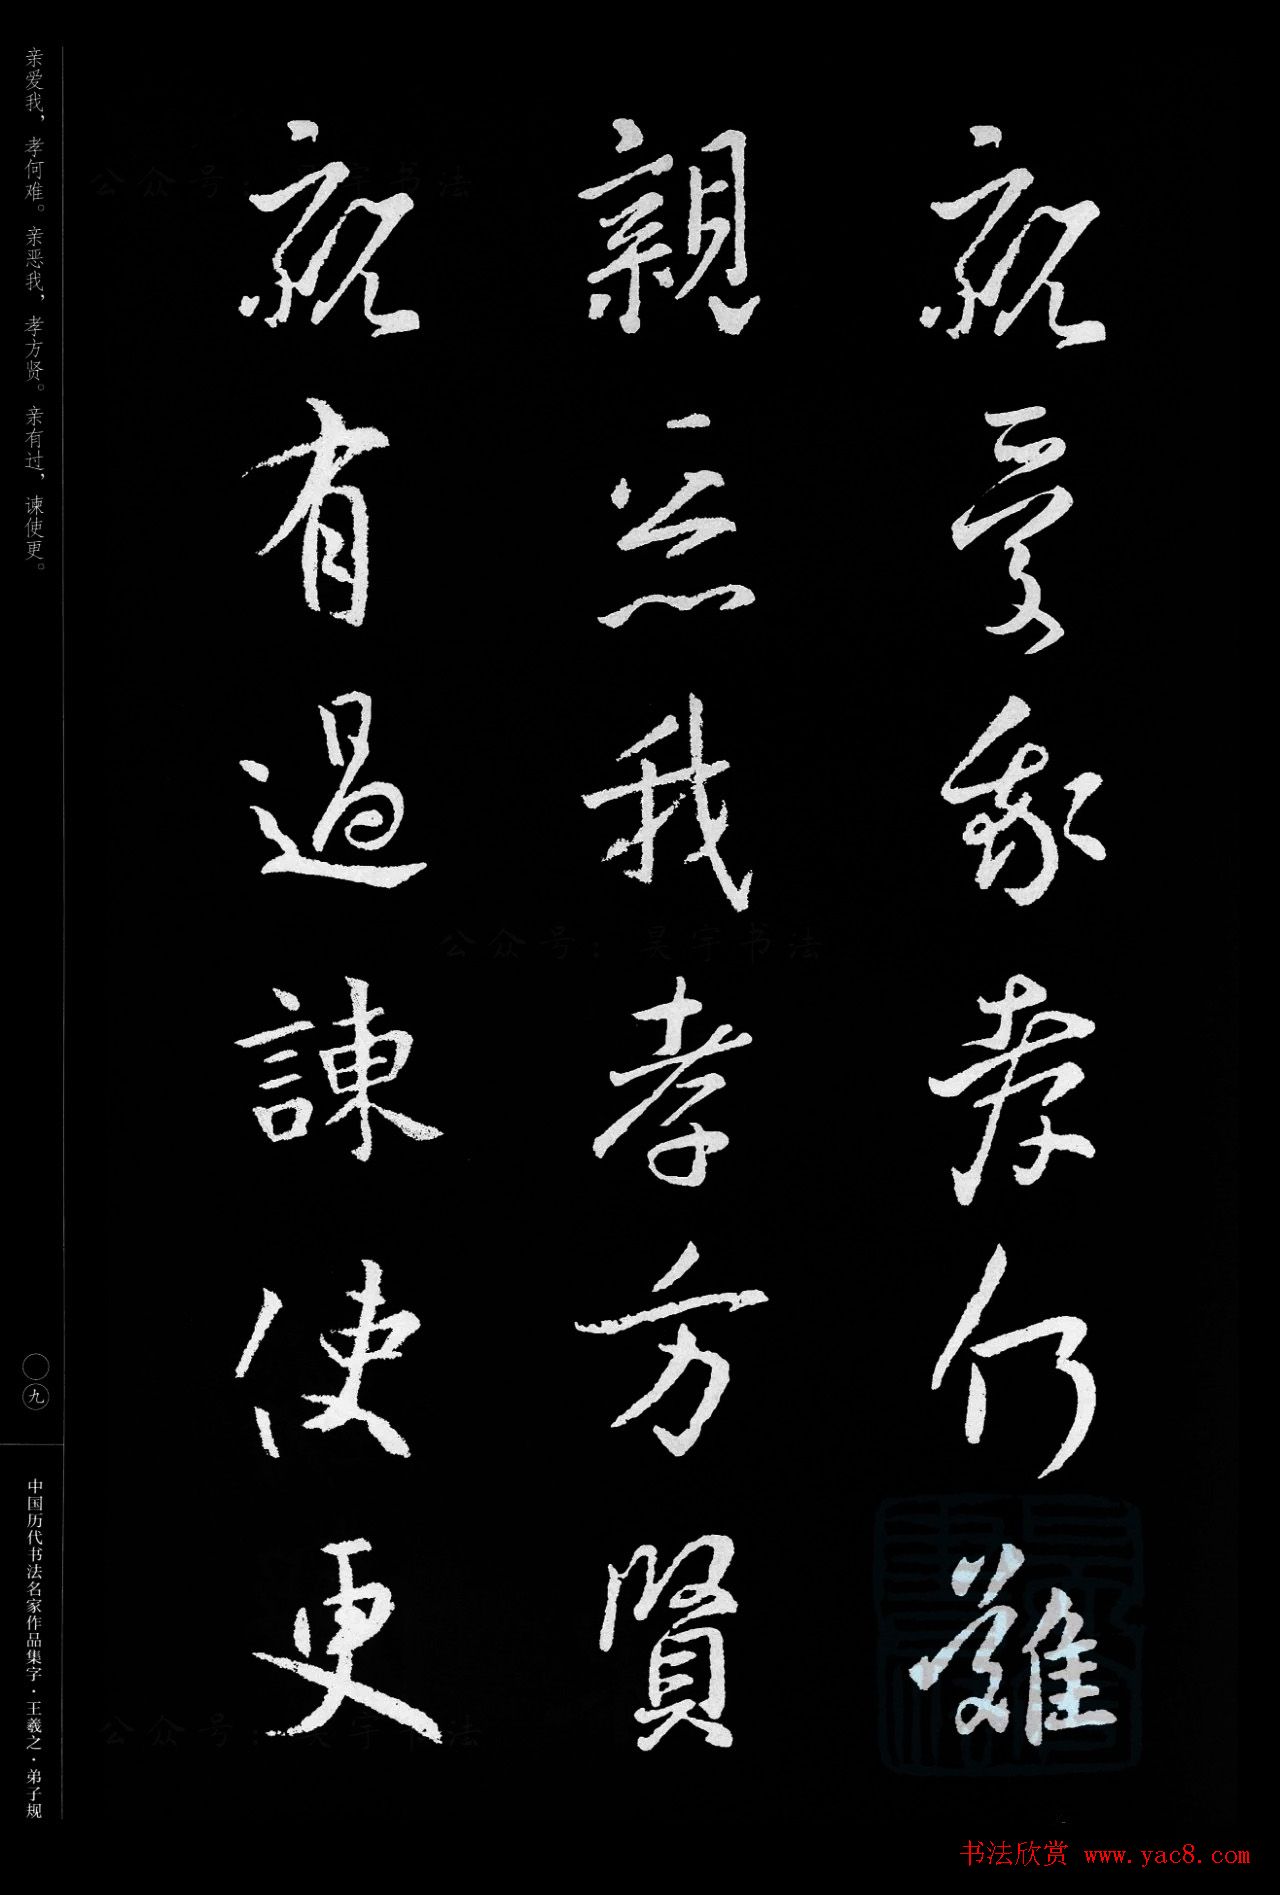 親愛我孝何難
親惡我孝方賢
親有過諫使更
亲爱我，孝何难。亲恶我，孝方贤。亲有过，谏使更。
〇九
中国历代书法名家作品集字·王羲之·弟子规
公众号：昊宇书法
公众号：昊宇书法
公众号：昊宇书法
书法欣赏 www.yac8.com